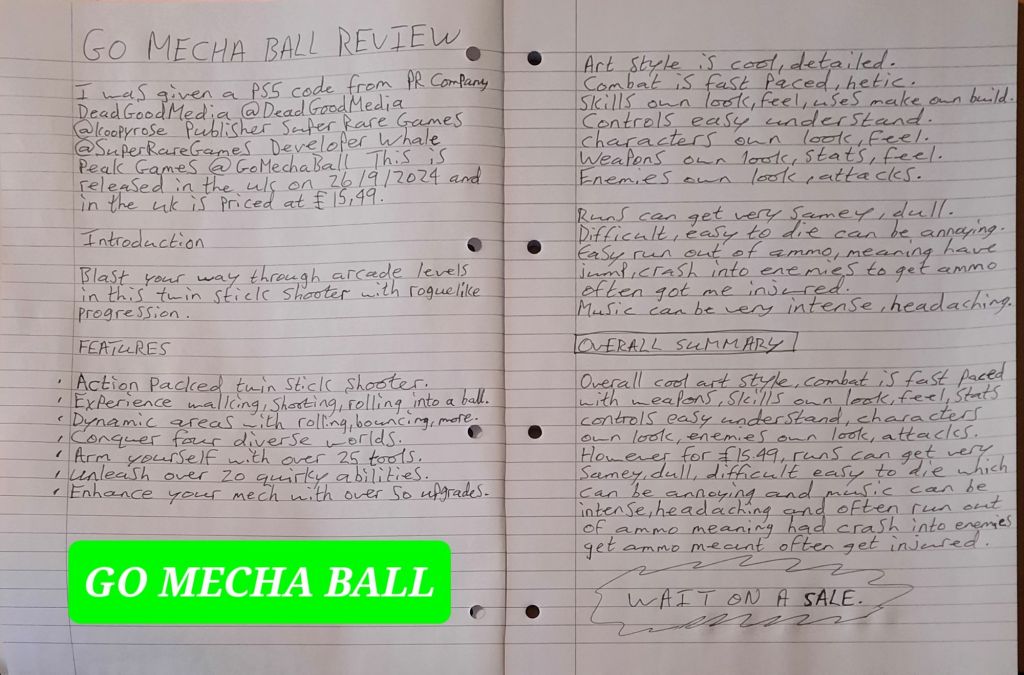 GO MECHA BALL REVIEW
I was given a PS5 code from PR Company
DeadGoodMedia @DeadGoodMedia
@koopyrose Publisher Super Rare Games
@SuperRareGames Developer Whale
Peak Games @GoMechaBall This is
released in the uk on 26/9/2024 and
in the uk is priced at £15,49.
Introduction
Blast your way through arcade levels
in this twin stick shooter with roguelike
progression.
FEATURES
· Action Packed twin stick shooter.
· Experience walking, shooting, rolling into a ball.
· Dynamic areas with rolling, bouncing, more.
· Conquer four diverse worlds.
· Arm yourself with over 25 tools.
· Unleash over 20 quirky abilities.
· Enhance your mech with over 50 upgrades.
GO MECHA BALL
Art style is cool, detailed.
Combat is fast paced, hetic.
Skills own look, feel, uses make own build.
Controls easy understand.
Characters own look, feel.
Weapons own look, stats, feel.
Enemies own look, attacks.
Runs can get very samey, dull.
Difficult, easy to die can be annoying.
Easy run out of ammo, meaning have
jump, crash into enemies to get ammo
often got me injured.
Music can be very intense, headaching.
OVERALL SUMMARY
Overall cool art style, combat is fast paced
with weapons, skills own look, feel, stats
controls easy understand, characters
own look, enemies own look, attacks.
However for £15.49, runs can get very
samey, dull, difficult easy to die which
can be annoying and music can be
intense, headaching and often run out
of ammo meaning had crash into enemies
get ammo meant often get injured.
WAIT ON A SALE.